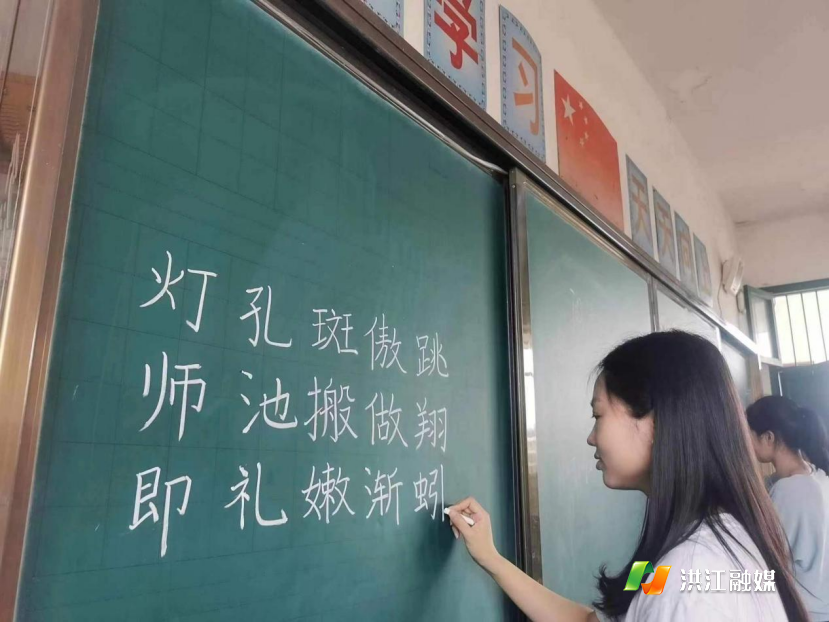 学习
天天
灯孔斑傲跳
师池搬做翔
即礼嫩渐蚓
洪江融媒